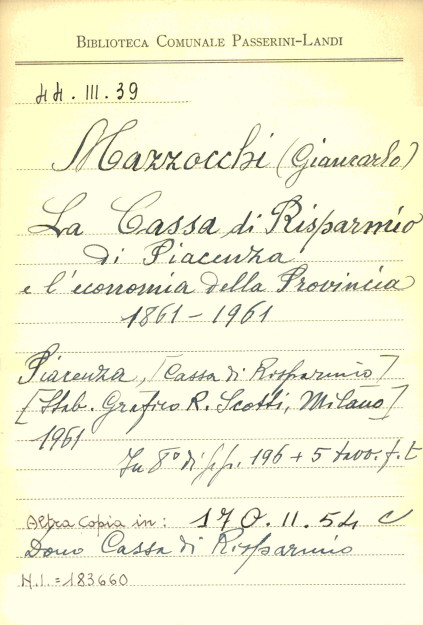 BIBLIOTECA COMUNALE PASSERINI-LANDI
44.III.39
Mazzocchi (Giancarlo)
La Cassa di Risparmio
di Piacenza
e l'economia della Provincia
1861-1961
Piacenza, [Cassa di Risparmio]
[Stab. Grafico R. Scotti, Milano]
1961
In 8° di pp. 196 + 5 tavv. f. t
Altra copia in: 170.II.54 c
Dono Cassa di Risparmio
N.I. = 183660